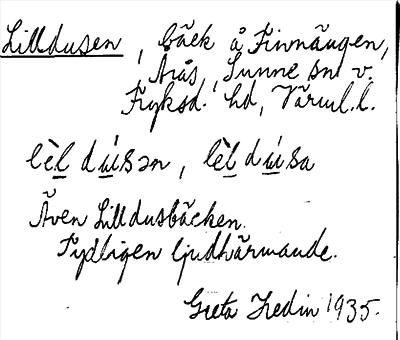 Lilldusen, bäck å Finnängen,
Årås, Sunne sn v.
Fryksd. hd, Värml. l.
lèl dúsən, lèl dúsa
Även Lilldusbäcken.
Tydligen ljudhärmande.
Greta Hedin 1935.